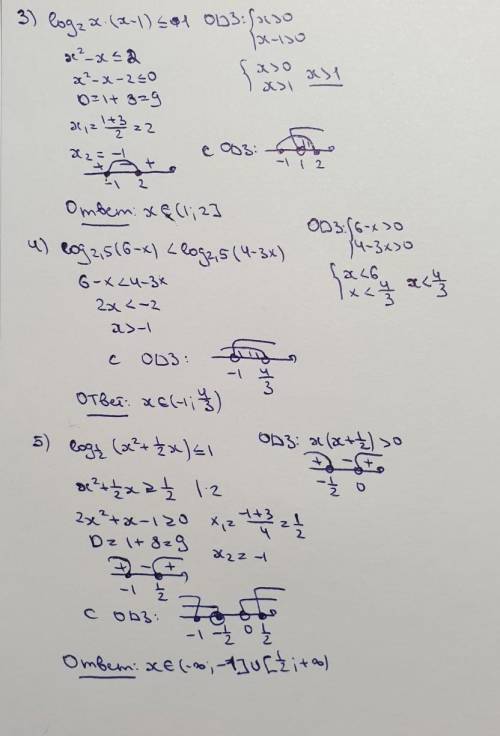 3) log₂ x·(x-1) ≤ 1 ОДЗ: { x>0
x-1>0
x²-x ≤ 2
x²-x-2≤0
{ x>0
x>1 x>1
D=1+8=9
x₁=(1+3)/2=2
x₂=-1
+ +
-1 2
с ОДЗ:
-1 1 2
Ответ: x∈(1;2]
4) log₂,₅(6-x) < log₂,₅(4-3x)
ОДЗ: { 6-x>0
4-3x>0
6-x<4-3x
{ x<6
x<4/3 x<4/3
2x<-2
x>-1
с ОДЗ:
-1 4/3
Ответ: x∈(-1; 4/3)
5) log½ (x²+½x) ≤ 1 ОДЗ: x(x+½)>0
+ - +
-½ 0
x²+½x ≥ ½ |·2
2x²+x-1≥0 x₁=(-1+3)/4=½
D=1+8=9 x₂=-1
+ - +
-1 ½
с ОДЗ:
-1 -½ 0 ½
Ответ: x∈(-∞;-1]∪[½;+∞)